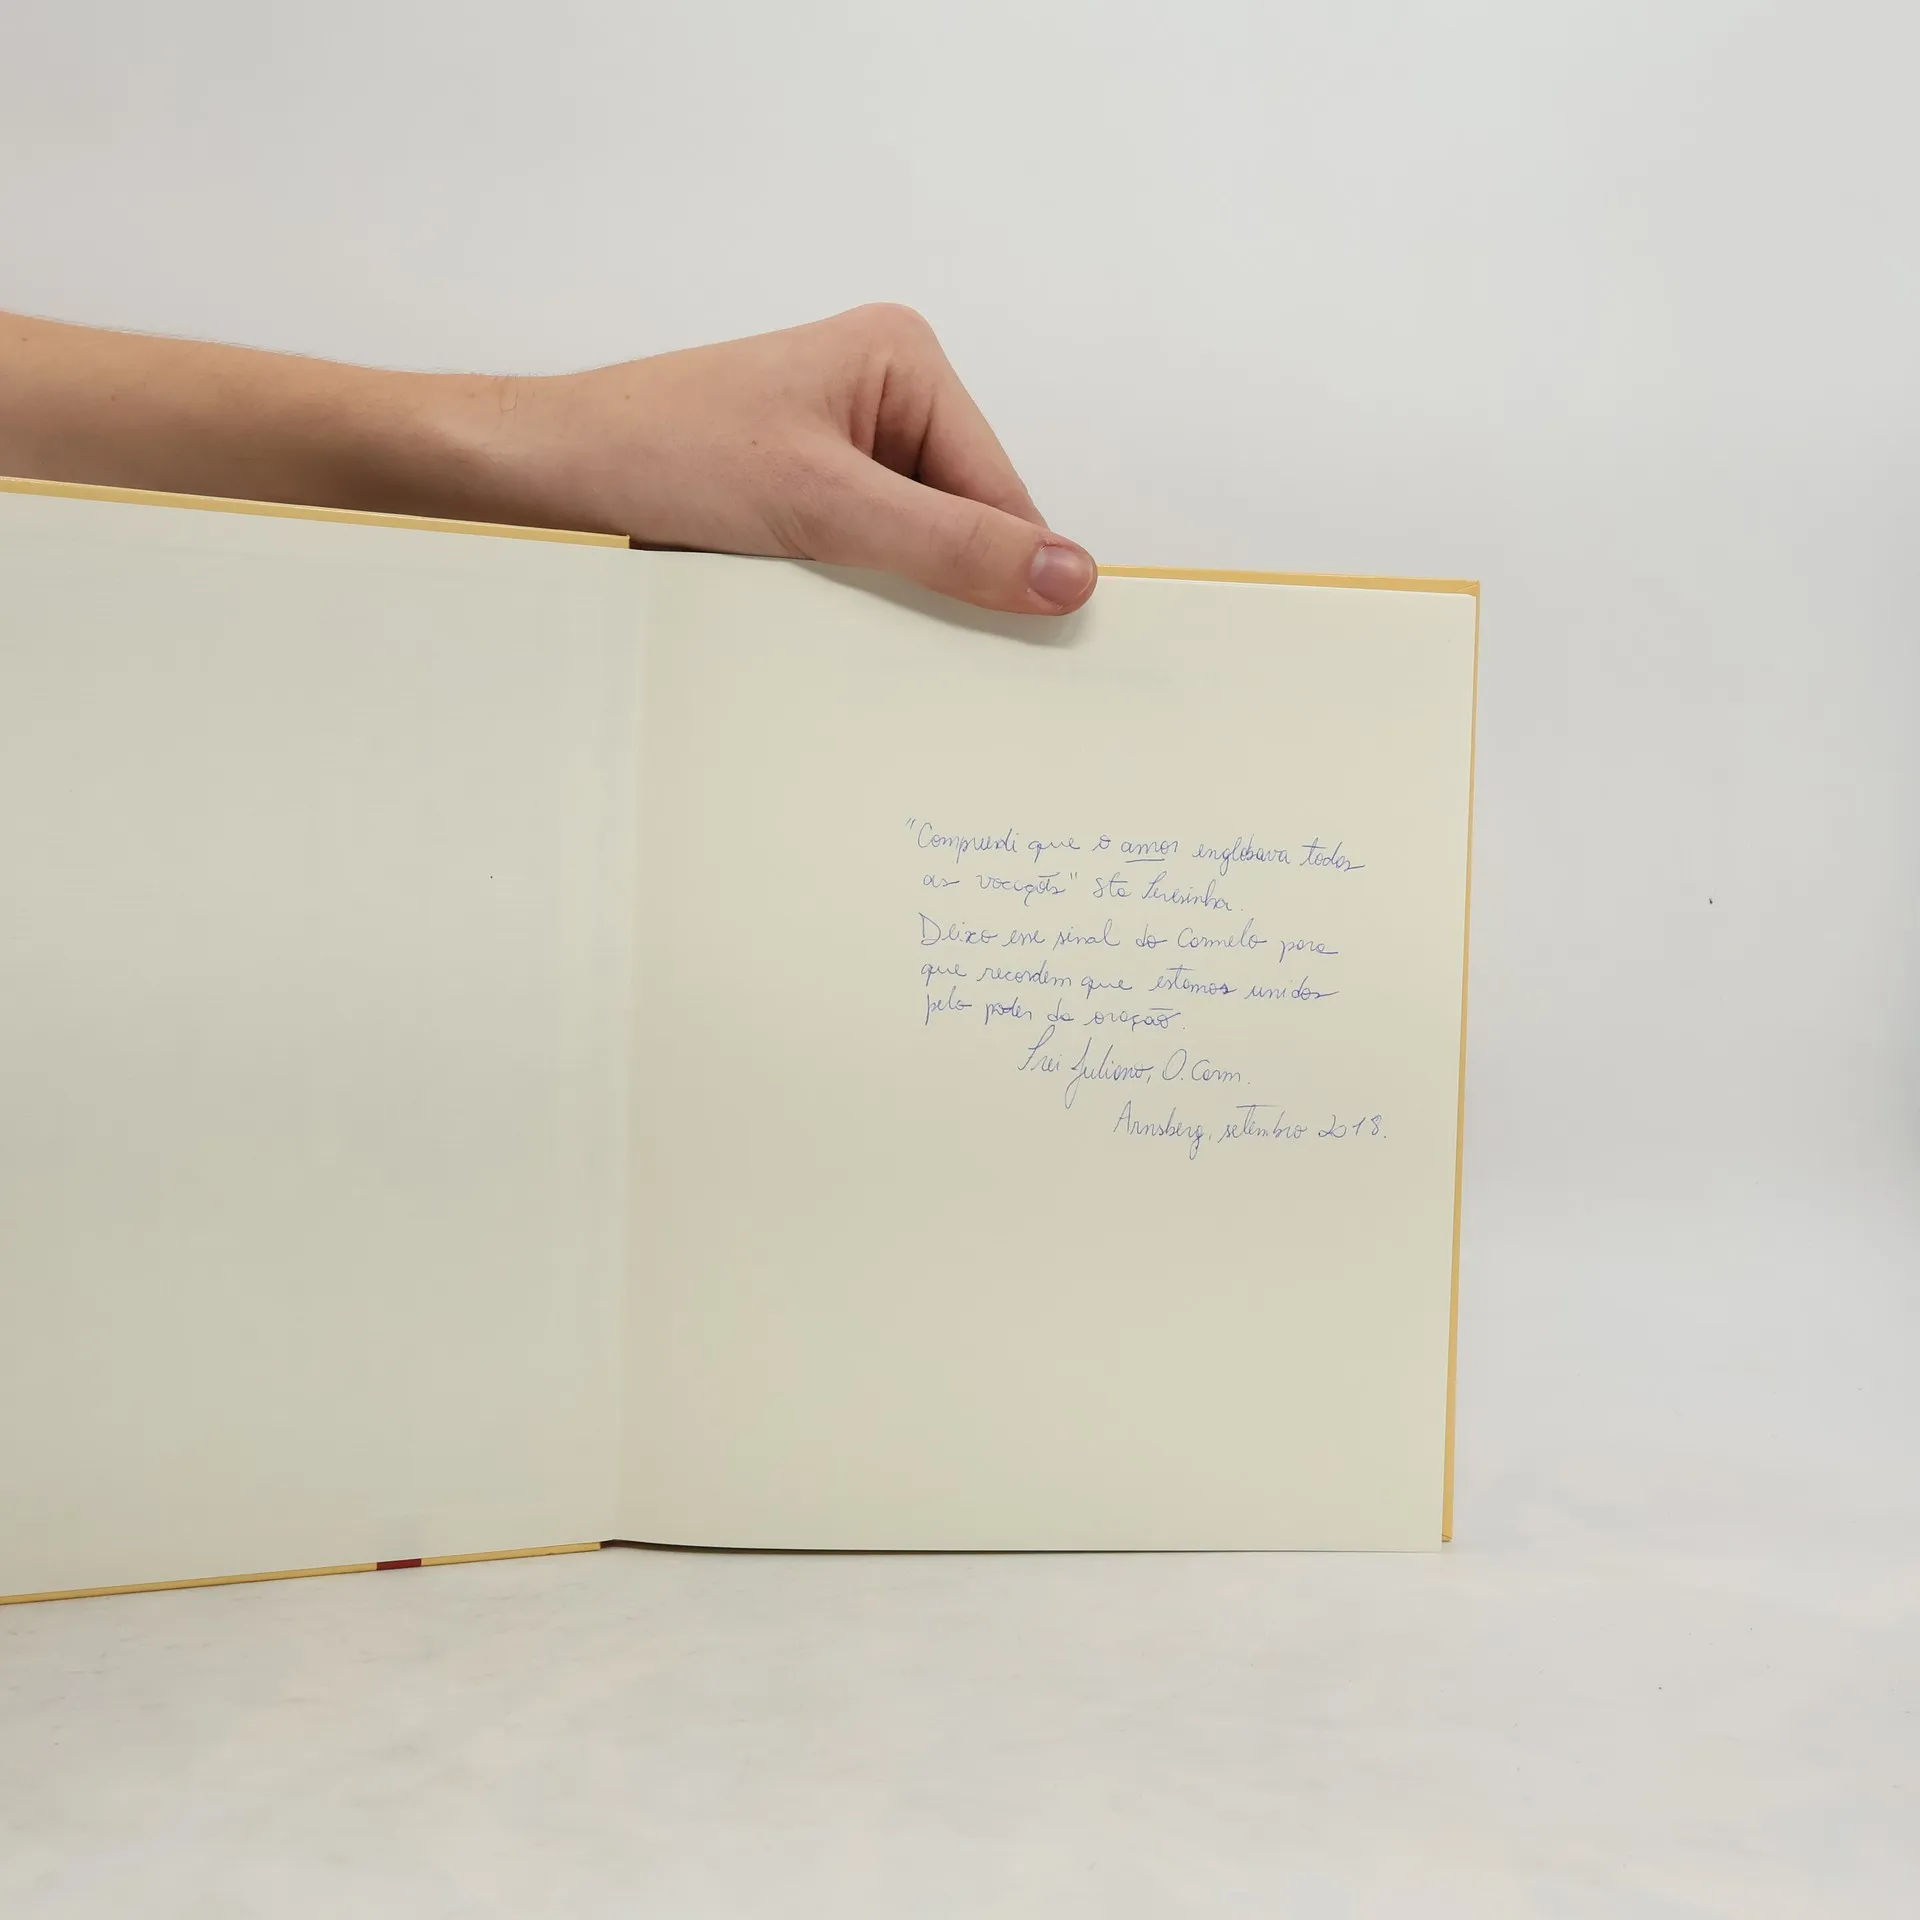 "Compreendi que o amor englobava todas
as vocações" Sta Teresinha.
Deixo esse sinal do Carmelo para
que recordem que estamos unidos
pelo poder da oração.
Frei Juliano, O. Carm.
Arnsberg, setembro 2018.